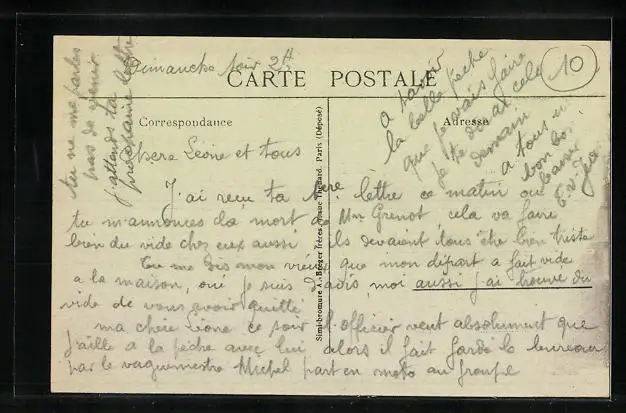 Dimanche soir 2H
CARTE POSTALE
10
Correspondance
Adresse
Chere Léone et tous
J'ai reçu ta 1ere lettre ce matin ou
tu m'annonces la mort de Mr Grenot cela va faire
bien du vide chez eux aussi ils devaient tous être bien triste
Tu me dis mon vieux que mon départ a fait vide
a la maison, oui je suis d'avis, moi aussi j'ai trouvé du
vide de vous avoir quitté
ma chere Léone ce soir l'officier veut absolument que
j'aille a la pêche avec lui alors il fait garder le bureau
par le vaguemestre Michel part en moto au groupe
a savoir
la belle pêche
que je vais faire
je te dirai cela
demain
a tous un
bon
baiser
tu ne me parles
pas de venir
j'attends ta
prochaine lettre
Simi-bromure A. Breger frères, 9, rue Thénard, Paris (Déposé)